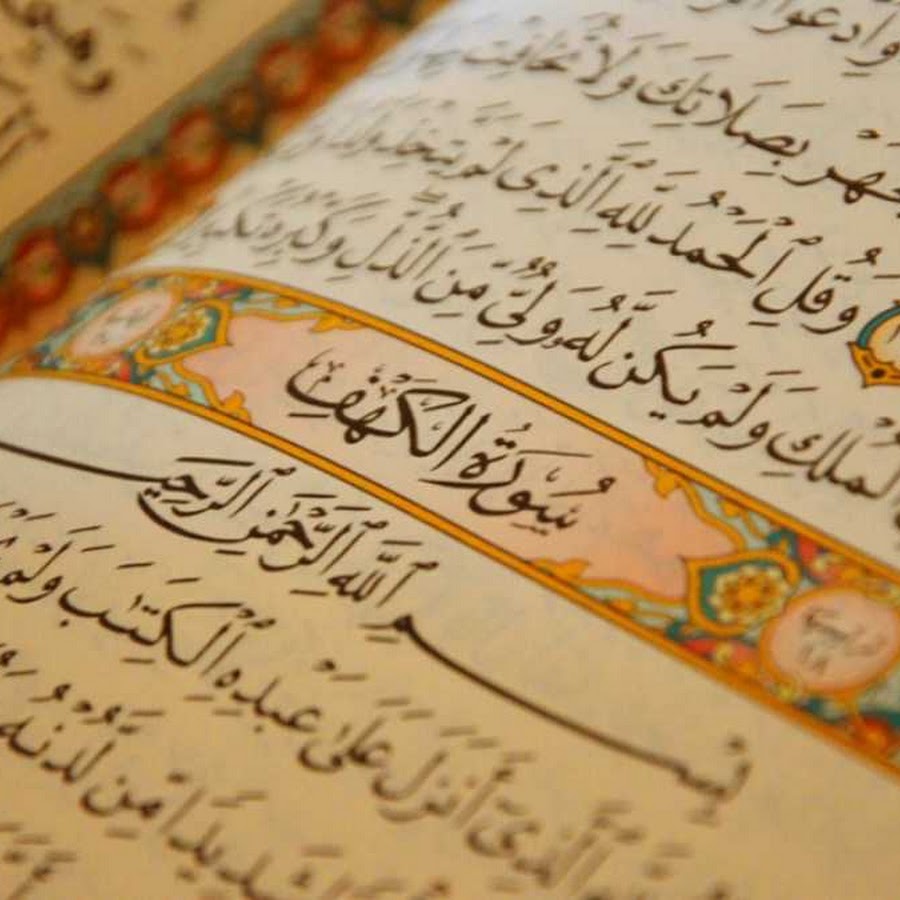 وادعوا
جهر بصلاتك ولا تخافت
وَقُلِ ٱلْحَمْدُ لِلَّهِ ٱلَّذِى لَمْ يَتَّخِذْ وَلَدًا
ٱلْمُلْكِ وَلَمْ يَكُن لَّهُۥ وَلِىٌّ مِّنَ ٱلذُّلِّ وَكَبِّرْهُ تَكْبِيرًا
سُورَةُ الكَهْفِ
ترتيبها ١٨
بِسْمِ ٱللَّهِ ٱلرَّحْمَٰنِ ٱلرَّحِيمِ
ٱلَّذِىٓ أَنزَلَ عَلَىٰ عَبْدِهِ ٱلْكِتَٰبَ وَلَمْ
شَدِيدًا مِّن لَّدُنْهُ